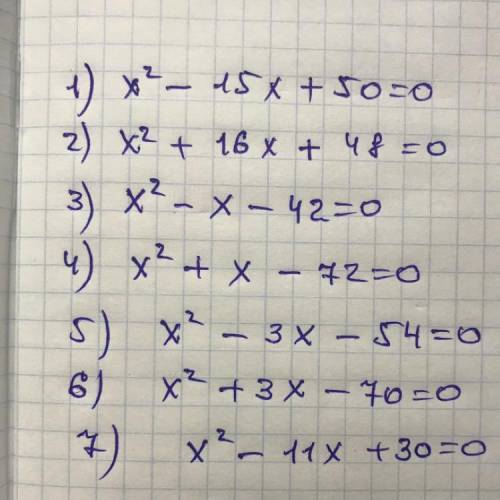 1) x² - 15x + 50 = 0
2) x² + 16x + 48 = 0
3) x² - x - 42 = 0
4) x² + x - 72 = 0
5) x² - 3x - 54 = 0
6) x² + 3x - 70 = 0
7) x² - 11x + 30 = 0